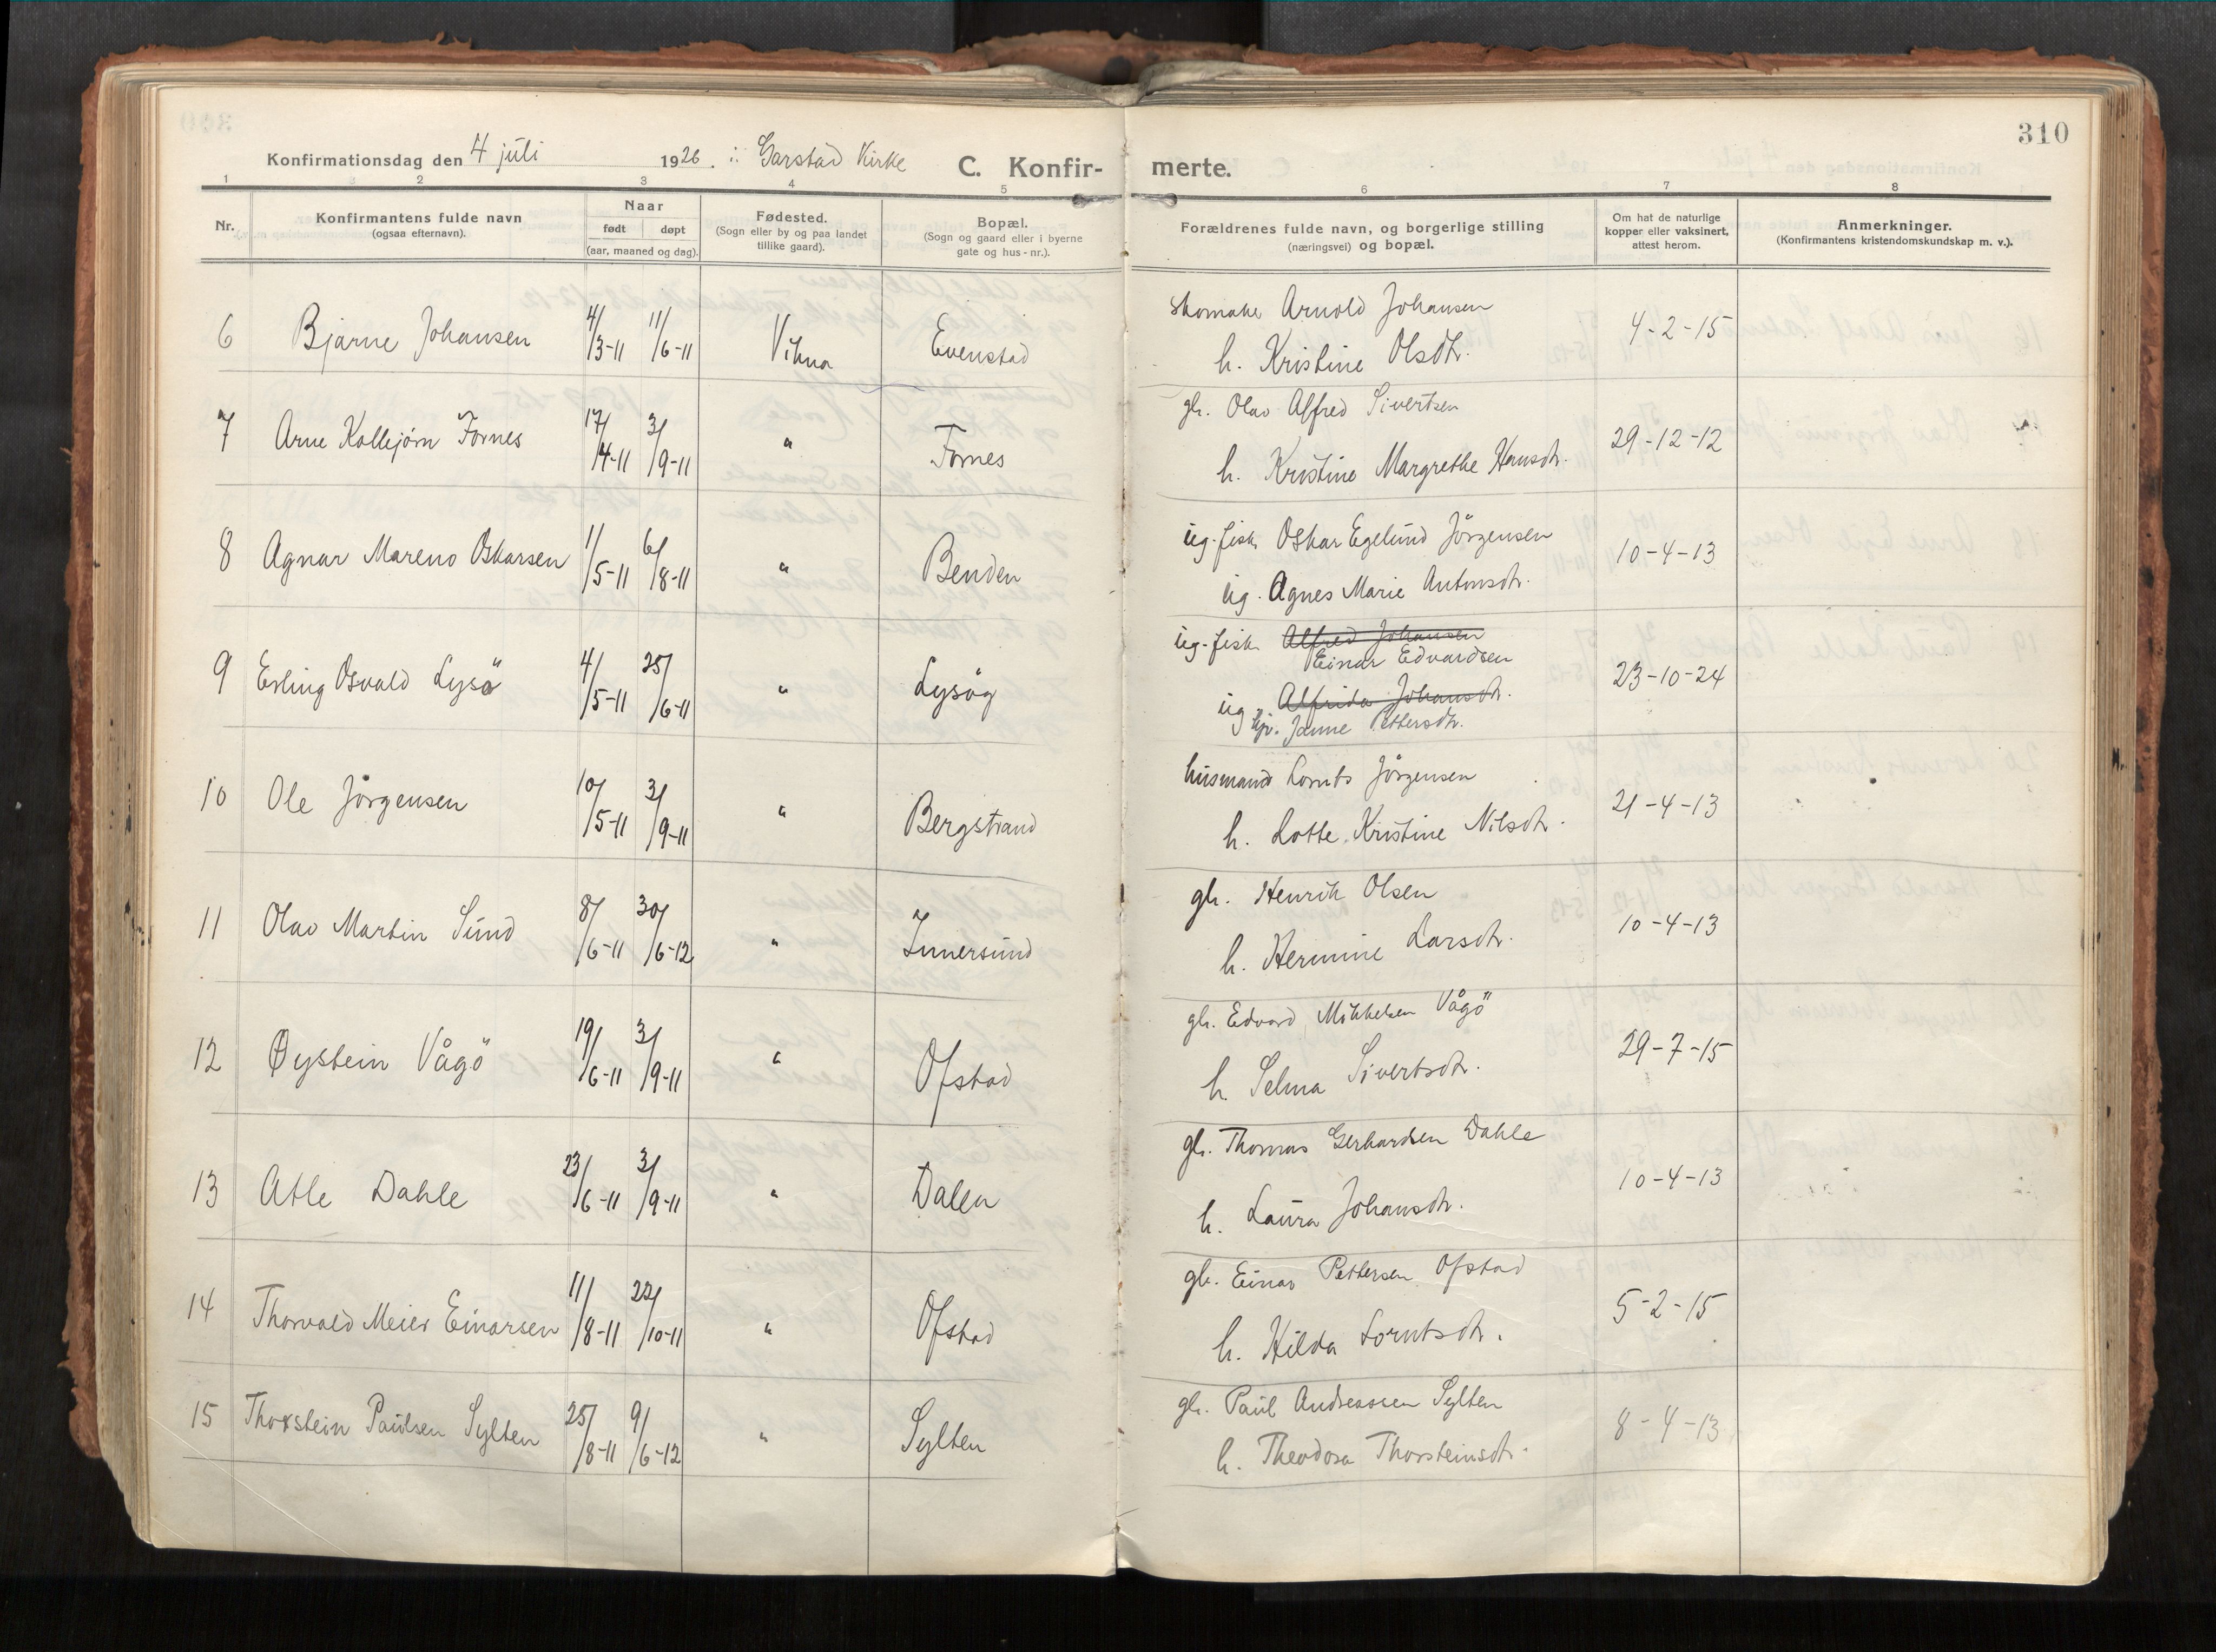 310
Konfirmationsdag den 4 juli 1926. i: Garstad Kirke C. Konfir- merte.
1 2 3 4 5 6 7 8
Nr. Konfirmantens fulde navn (ogsaa efternavn). Naar født døpt (aar, maaned og dag). Fødested. (Sogn eller by og paa landet tillike gaard). Bopæl. (Sogn og gaard eller i byerne gate og hus-nr.). Forældrenes fulde navn, og borgerlige stilling (næringsvei) og bopæl. Om hat de naturlige kopper eller vaksinert, attest herom. Anmerkninger. (Konfirmantens kristendomskundskap m. v.).
6 Bjarne Johansen 4/3-11 11/6-11 Vikna Evenstad Skomaker Arnold Johansen
h. Kristine Olsdtr. 4-2-15
7 Arne Kollbjørn Fornes 17/4-11 3/9-11 " Fornes gbr. Olav Alfred Sivertsen
h. Kristine Margrethe Hansdtr. 29-12-12
8 Agnar Mareno Oskarsen 1/5-11 6/8-11 " Benden ug. fisk. Oskar Egelund Jörgensen
ug. Agnes Marie Antonsdtr. 10-4-13
9 Erling Osvald Lysö 4/5-11 25/6-11 " Lysög ug. fisk. Alfred Johansen
Einar Edvardsen
ug. Alfrida Johansdtr.
Janne Pettersdtr. 23-10-24
10 Ole Jörgensen 10/5-11 3/9-11 " Bergstrand husmand Lornts Jörgensen
h. Lotte Kristine Nilsdtr. 21-4-13
11 Olav Martin Sund 8/6-11 30/6-12 " Innersund gbr. Henrik Olsen
h. Hermine Larsdtr. 10-4-13
12 Øystein Vågö 19/6-11 3/9-11 " Ofstad gbr. Edvard Mikkelsen Vågö
h. Selma Sivertsdtr. 29-7-15
13 Atle Dahle 23/6-11 3/9-11 " Dalen gbr. Thomas Gerhardsen Dahle
h. Laura Johansdtr. 10-4-13
14 Thorvald Meier Einarsen 11/8-11 22/10-11 " Ofstad gbr. Einar Pettersen Ofstad
h. Hilda Lorntsdtr. 5-2-15
15 Thorstein Paulsen Sylten 25/8-11 9/6-12 " Sylten gbr. Paul Andreassen Sylten
h. Theodora Thorsteinsdtr. 8-4-13